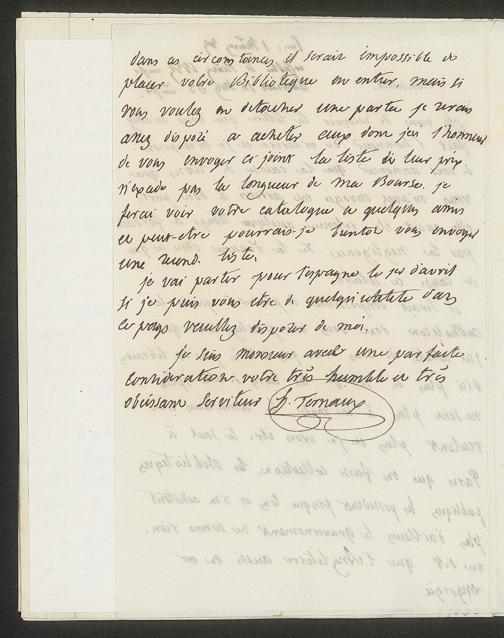 dans ces circonstances il serait impossible de
placer votre Biblioteque en entier, mais si
vous voulez en detacher une partie je serais
assez disposé a acheter ceux dont j'ai l'honneur
de vous envoyer ci joint la liste si leur prix
n'excede pas la longueur de ma Bourse. je
ferai voir votre catalogue a quelques amis
et peut-etre pourrais-je bientot vous envoyer
une seconde liste.
je vai partir pour l'espagne le 1er d'avril
si je puis vous etre de quelqu'utilité dans
ce pays veuillez disposer de moi.
je suis monsieur avec une parfaite
consideration votre très humble et très
obeissant serviteur H. Ternaux